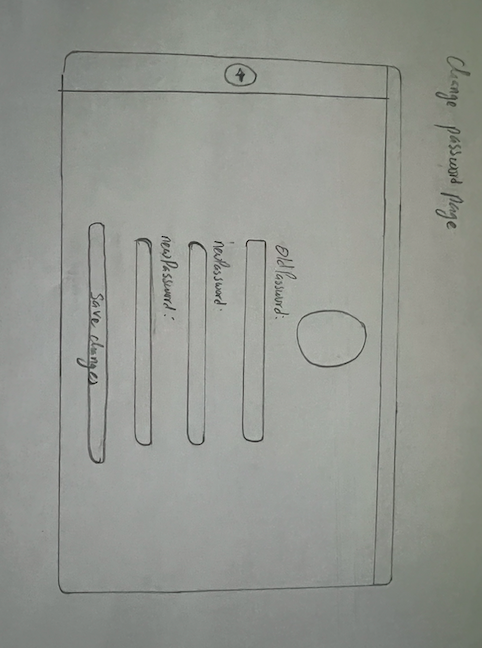 Change password page
Old Password:
newPassword:
newPassword:
Save changes